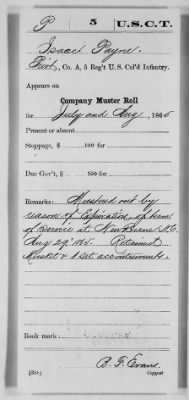 P 5 U.S.C.T.
Isaac Payne
Pvt, Co. A, 5 Reg't U. S. Col'd Infantry.
Appears on
Company Muster Roll
for July and Aug, 1865
Present or absent
Stoppage, $ 100 for
Due Gov't, $ 100 for
Remarks: Mustered out by
reason of Expiration of term
of Service at New Berne N.C.
Aug 29" 1865. Retained
Musket & set accoutrements.
Book mark:
B. F. Evans
Copyist.